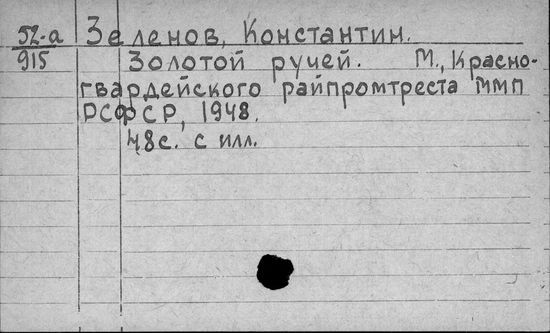 52-а Зеленов, Константин.
915 Золотой ручей. М., Красно-
гвардейского райпромтреста ММП
РСФСР, 1948.
48с. с илл.